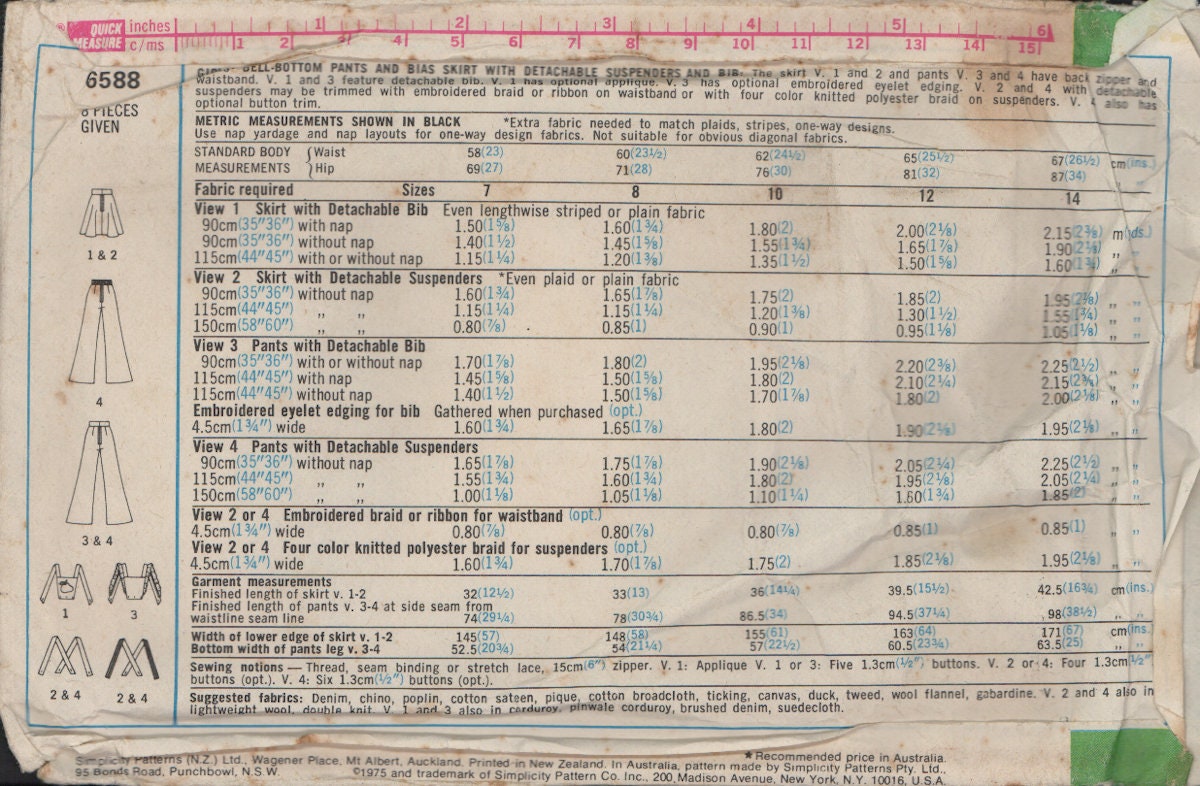 QUICK MEASURE inches 1 2 3 4 5 6
c/ms 1 2 3 4 5 6 7 8 9 10 11 12 13 14 15
6588
8 PIECES
GIVEN
BELL-BOTTOM PANTS AND BIAS SKIRT WITH DETACHABLE SUSPENDERS AND BIB: The skirt V. 1 and 2 and pants V. 3 and 4 have back zipper and
waistband. V. 1 and 3 feature detachable bib. V. 1 has optional applique. V. 3 has optional embroidered eyelet edging. V. 2 and 4 with detachable
suspenders may be trimmed with embroidered braid or ribbon on waistband or with four color knitted polyester braid on suspenders. V. 4 also has
optional button trim.
METRIC MEASUREMENTS SHOWN IN BLACK *Extra fabric needed to match plaids, stripes, one-way designs.
Use nap yardage and nap layouts for one-way design fabrics. Not suitable for obvious diagonal fabrics.
STANDARD BODY Waist 58(23) 60(23½) 62(24½) 65(25½) 67(26½) cm(ins.)
MEASUREMENTS Hip 69(27) 71(28) 76(30) 81(32) 87(34)
Fabric required Sizes 7 8 10 12 14
View 1 Skirt with Detachable Bib Even lengthwise striped or plain fabric
90cm(35"36") with nap 1.50(1⅝) 1.60(1¾) 1.80(2) 2.00(2⅛) 2.15(2⅜) m(yds.)
90cm(35"36") without nap 1.40(1½) 1.45(1⅝) 1.55(1¾) 1.65(1⅞) 1.90(2⅛) ,, ,,
115cm(44"45") with or without nap 1.15(1¼) 1.20(1⅜) 1.35(1½) 1.50(1⅝) 1.60(1¾) ,, ,,
View 2 Skirt with Detachable Suspenders *Even plaid or plain fabric
90cm(35"36") without nap 1.60(1¾) 1.65(1⅞) 1.75(2) 1.85(2) 1.95(2⅛) ,, ,,
115cm(44"45") ,, ,, 1.15(1¼) 1.15(1¼) 1.20(1⅜) 1.30(1½) 1.55(1¾) ,, ,,
150cm(58"60") ,, ,, 0.80(⅞) 0.85(1) 0.90(1) 0.95(1⅛) 1.05(1⅛) ,, ,,
View 3 Pants with Detachable Bib
90cm(35"36") with or without nap 1.70(1⅞) 1.80(2) 1.95(2⅛) 2.20(2⅜) 2.25(2½) ,, ,,
115cm(44"45") with nap 1.45(1⅝) 1.50(1⅝) 1.80(2) 2.10(2¼) 2.15(2⅜) ,, ,,
115cm(44"45") without nap 1.40(1½) 1.50(1⅝) 1.70(1⅞) 1.80(2) 2.00(2⅛) ,, ,,
Embroidered eyelet edging for bib Gathered when purchased (opt.)
4.5cm(1¾") wide 1.60(1¾) 1.65(1⅞) 1.80(2) 1.90(2⅛) 1.95(2⅛) ,, ,,
View 4 Pants with Detachable Suspenders
90cm(35"36") without nap 1.65(1⅞) 1.75(1⅞) 1.90(2⅛) 2.05(2¼) 2.25(2½) ,, ,,
115cm(44"45") ,, ,, 1.55(1¾) 1.60(1¾) 1.80(2) 1.95(2⅛) 2.05(2¼) ,, ,,
150cm(58"60") ,, ,, 1.00(1⅛) 1.05(1⅛) 1.10(1¼) 1.60(1¾) 1.85(2) ,, ,,
View 2 or 4 Embroidered braid or ribbon for waistband (opt.)
4.5cm(1¾") wide 0.80(⅞) 0.80(⅞) 0.80(⅞) 0.85(1) 0.85(1) ,, ,,
View 2 or 4 Four color knitted polyester braid for suspenders (opt.)
4.5cm(1¾") wide 1.60(1¾) 1.70(1⅞) 1.75(2) 1.85(2⅛) 1.95(2⅛) ,, ,,
Garment measurements
Finished length of skirt v. 1-2 32(12½) 33(13) 36(14¼) 39.5(15½) 42.5(16¾) cm(ins.)
Finished length of pants v. 3-4 at side seam from
waistline seam line 74(29¼) 78(30¾) 86.5(34) 94.5(37¼) 98(38½) ,, ,,
Width of lower edge of skirt v. 1-2 145(57) 148(58) 155(61) 163(64) 171(67) cm(ins.
Bottom width of pants leg v. 3-4 52.5(20¾) 54(21¼) 57(22½) 60.5(23¾) 63.5(25) ,, ,,
Sewing notions — Thread, seam binding or stretch lace, 15cm(6") zipper. V. 1: Applique V. 1 or 3: Five 1.3cm(½") buttons. V. 2 or 4: Four 1.3cm(½")
buttons (opt.). V. 4: Six 1.3cm(½") buttons (opt.).
Suggested fabrics: Denim, chino, poplin, cotton sateen, pique, cotton broadcloth, ticking, canvas, duck, tweed, wool flannel, gabardine. V. 2 and 4 also in
lightweight wool, double knit. V. 1 and 3 also in corduroy, pinwale corduroy, brushed denim, suedecloth.
1 & 2
4
3 & 4
1 3
2 & 4 2 & 4
Simplicity Patterns (N.Z.) Ltd., Wagener Place, Mt Albert, Auckland. Printed in New Zealand. In Australia, pattern made by Simplicity Patterns Pty. Ltd.,
★Recommended price in Australia.
95 Bonds Road, Punchbowl, N.S.W. ©1975 and trademark of Simplicity Pattern Co. Inc., 200 Madison Avenue, New York, N.Y. 10016, U.S.A.